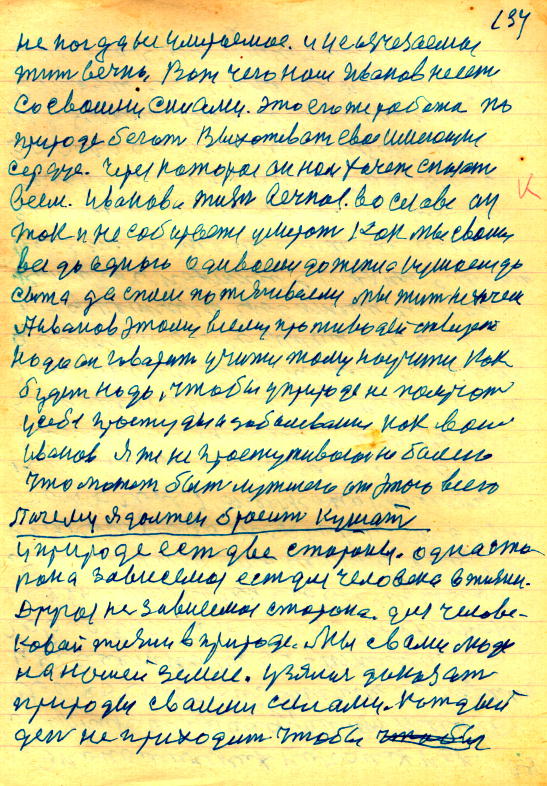 137
не когда не умираемое. и не изчезаемое
жит вечно. Вот чего наш Иванов несет
со своими силами. Это его же работа по
природе бегат Выхаживат свое имеющие
сердце. Через которое он нам хочет сказат
всем. Иванова жизн вечная. во славе он
так и не собирается умират Как мы своим
все до одного одиваем до тепла кушаем до
сыта да спим потягиваем мы жит не хочем
А Иванов этому всему противодействует
надо он говорит учит тому научит как
будет надо, чтобы у природе не получат
у себе простуды и заболевания как ваш
Иванов я же не простуживаюсь не болею
что может быт лутшего от этого всего
Почему я должен бросит Кушат
у природе ест две стороны. одна сто-
рона зависемая ест для человека в жизни.
Другая не зависемая сторона. для челове-
ковай жизни в природе. Мы с вами люди
на нашей земле. взялис доказат
природы сваими силами. Каждый
ден не приходит чтобы
К